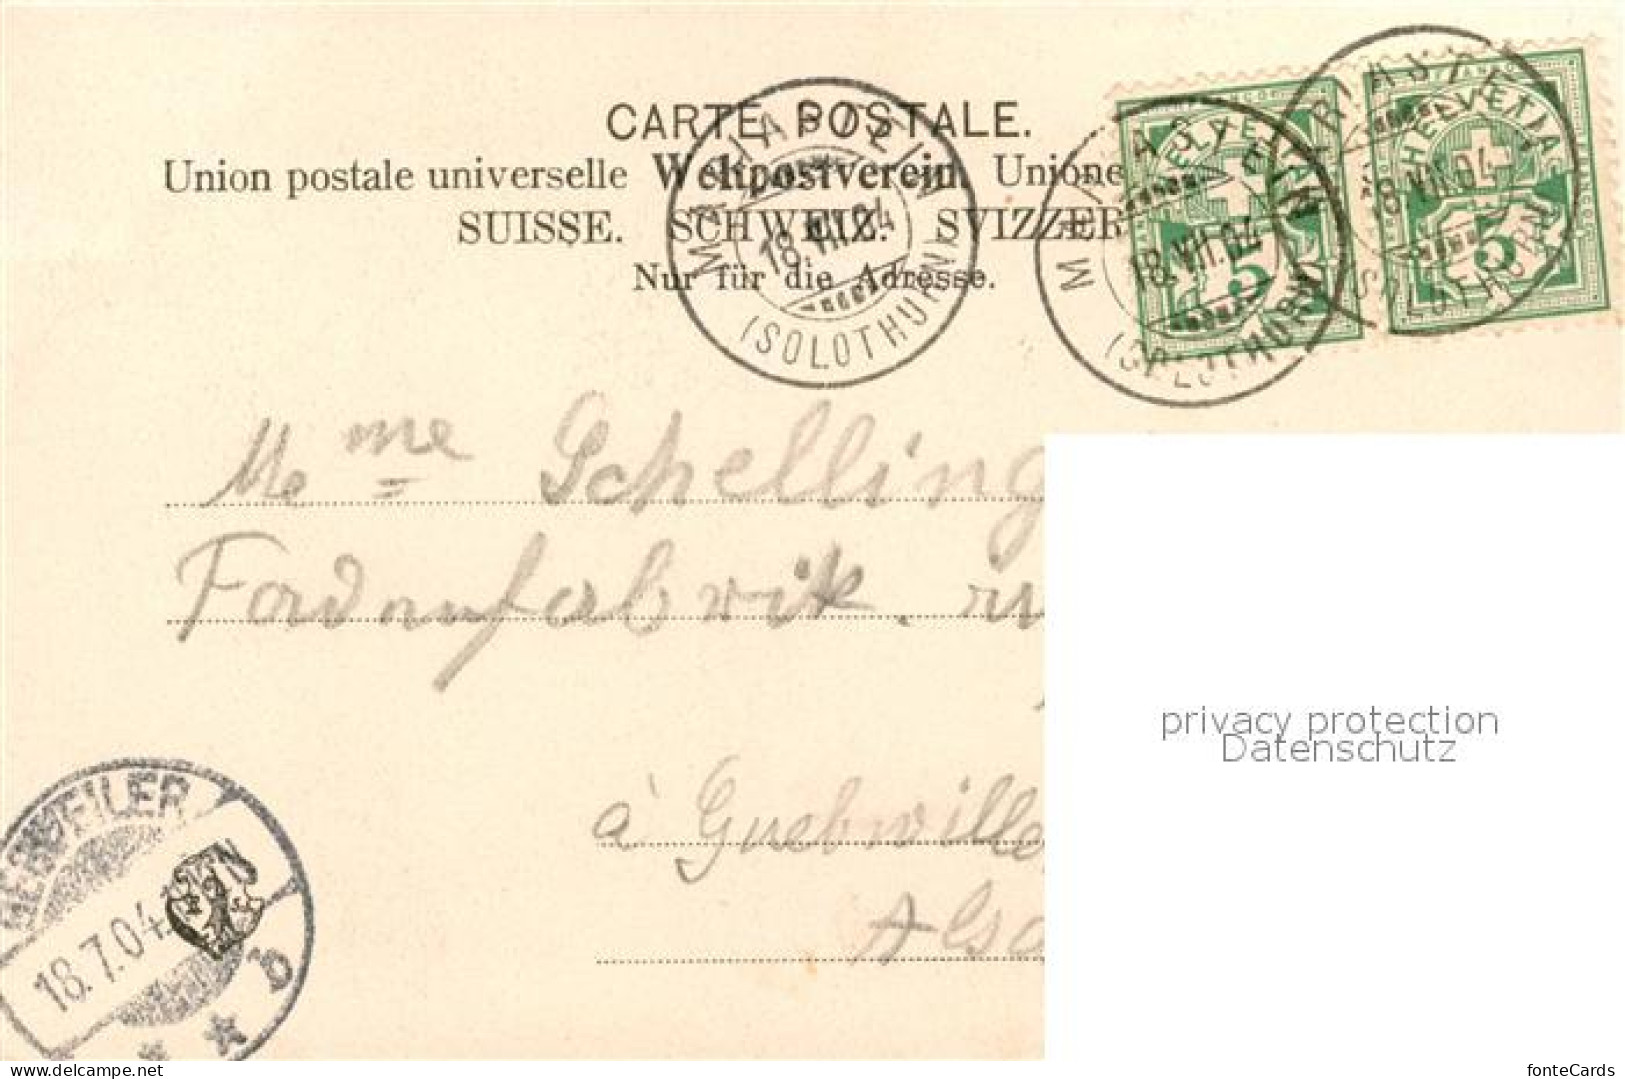 CARTE POSTALE.
Union postale universelle Weltpostverein. Unione
SUISSE. SCHWEIZ. SVIZZER
Nur für die Adresse.
MARIASTEIN
18.VII.04
(SOLOTHURN)
MARIASTEIN
18.VII.04
(SOLOTHURN)
MARIASTEIN
18.VII.04
(SOLOTHURN)
FRANCO
HELVETIA
5
FRANCO
HELVETIA
5
Mme Schelling
à Guebwiller
Alsa
GEBWEILER
18.7.04
b
privacy protection
Datenschutz
fonteCards